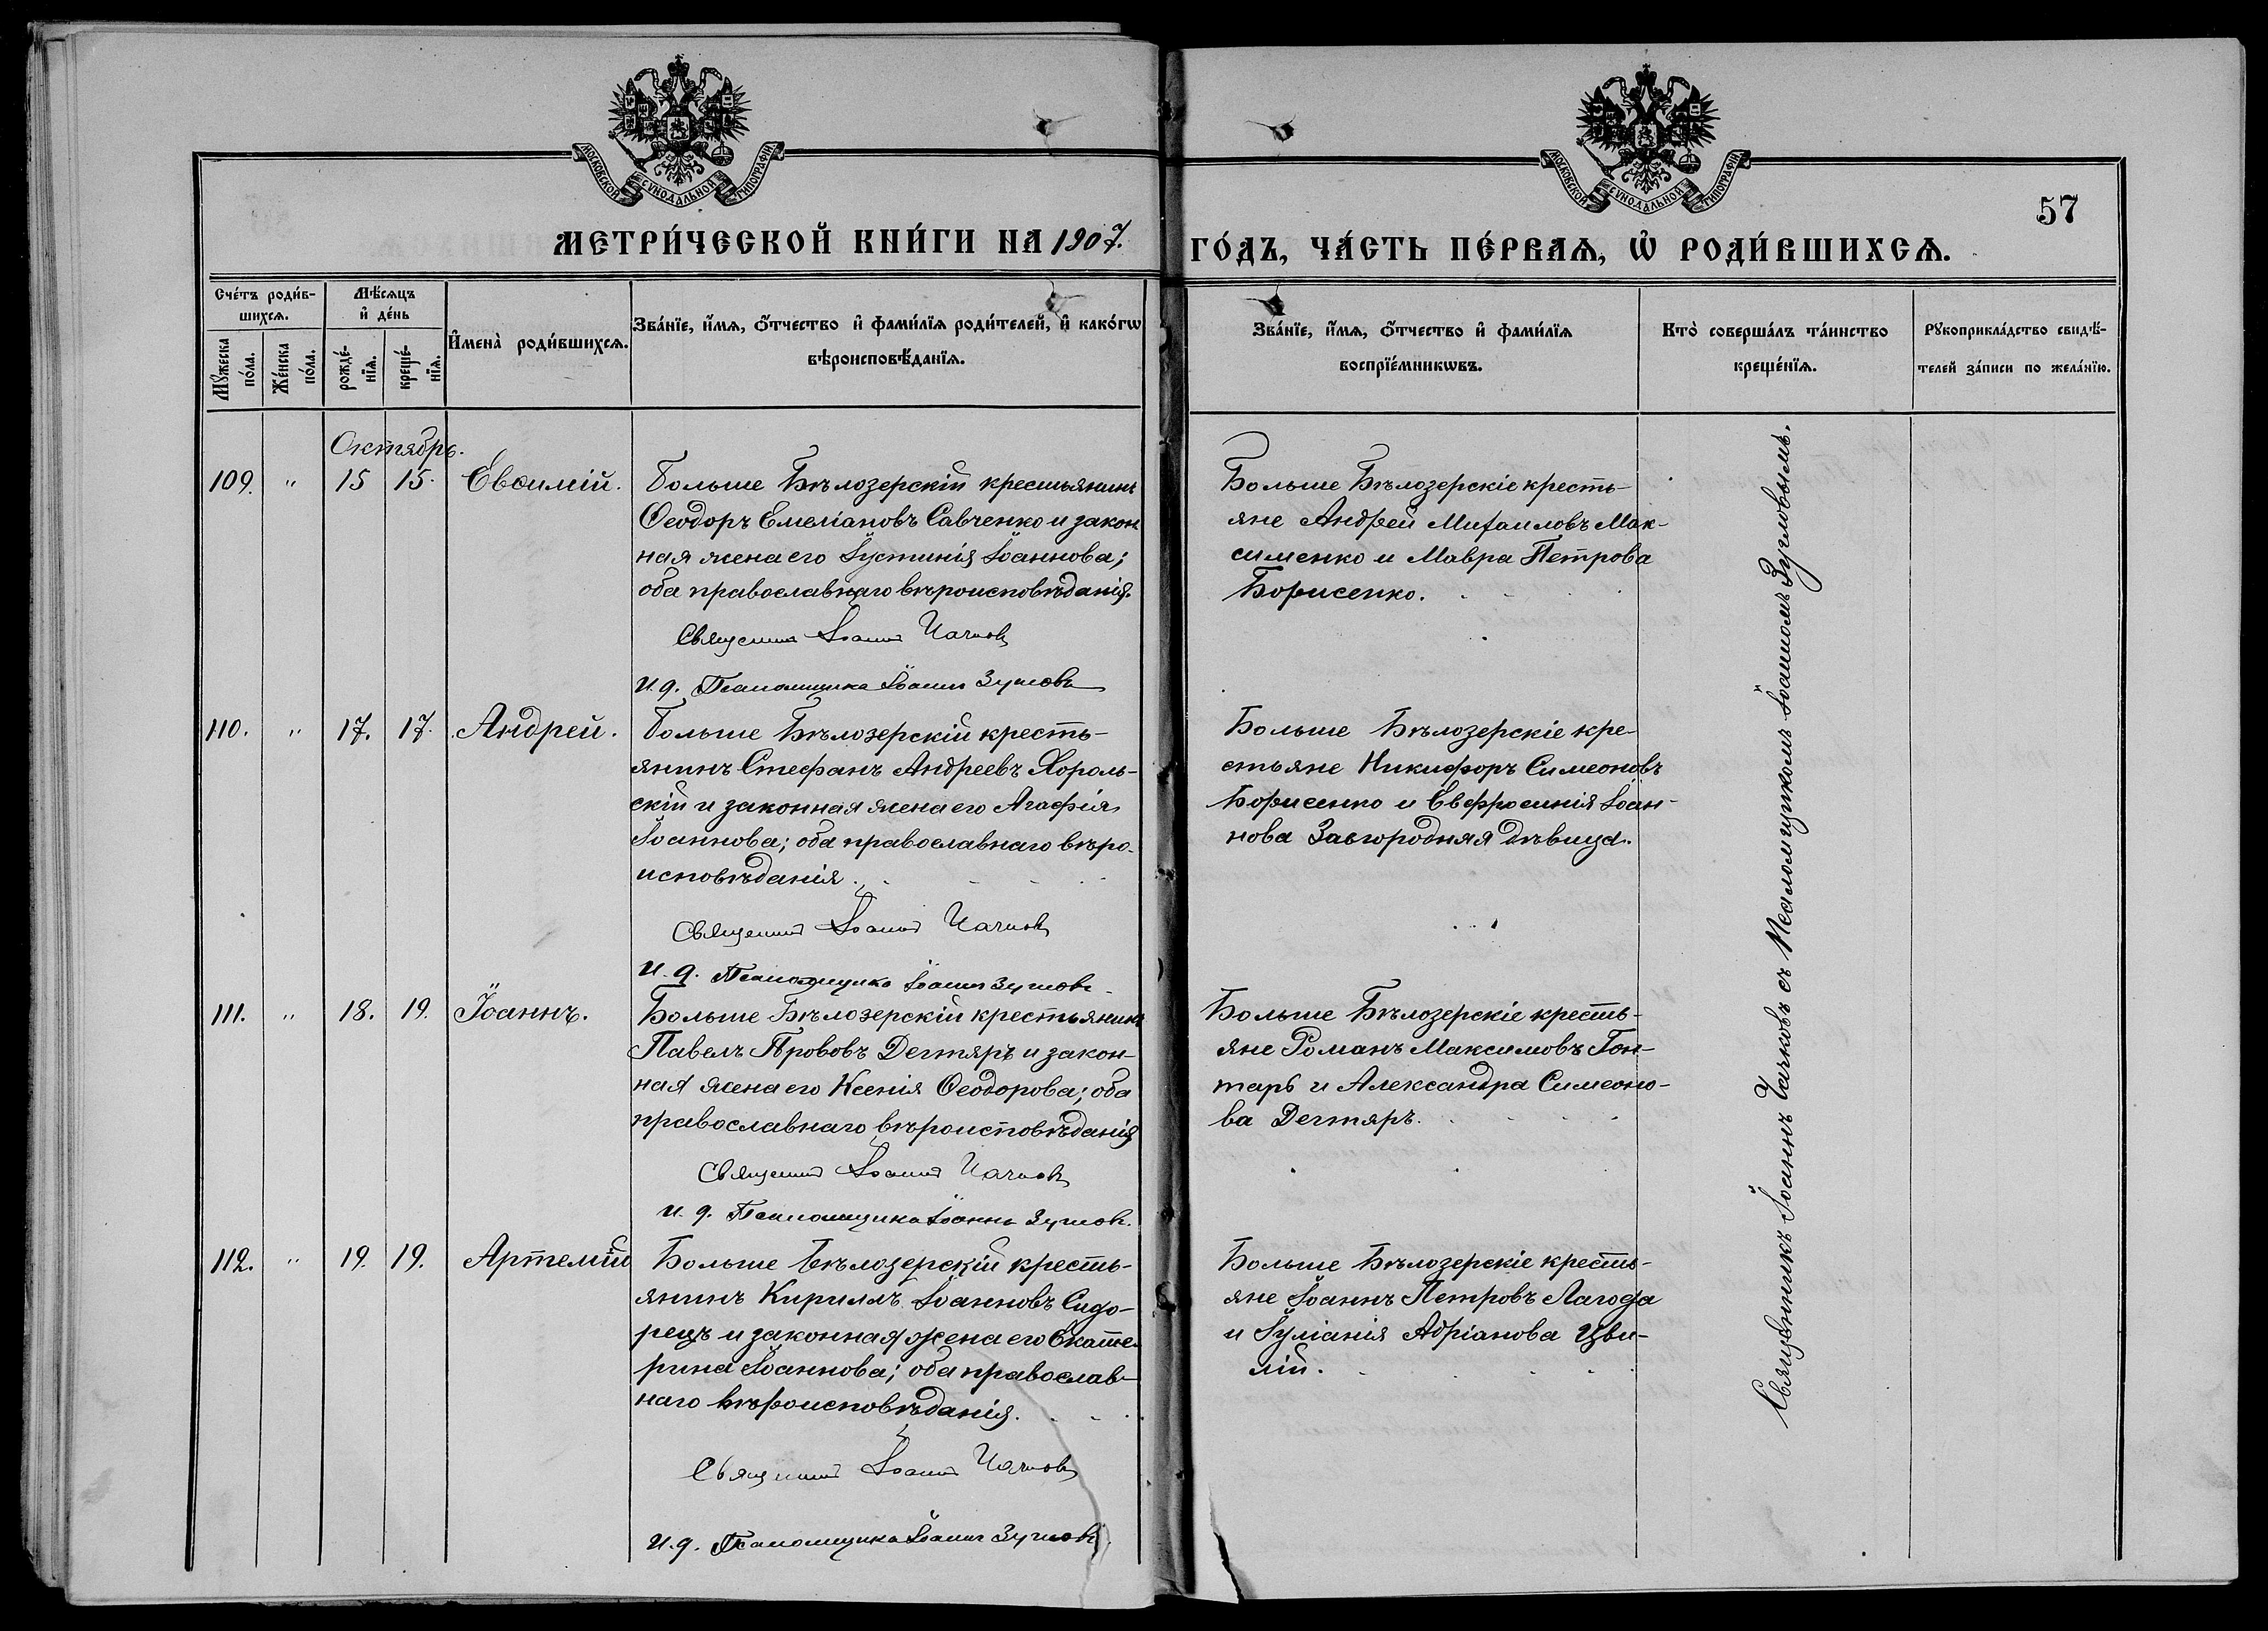 МОСКОВСКОЙ СѴНОДАЛЬНОЙ ТИПОГРАФІИ
МОСКОВСКОЙ СѴНОДАЛЬНОЙ ТИПОГРАФІИ
57
МЕТРИ́ЧЕСКОЙ КНИ́ГИ НА 1907.
ГО́ДЪ, ЧА́СТЬ ПЕ́РВАѦ, Ѡ҆ РОДИ́ВШИХСѦ.
Сче́тъ роди́в-
шихсѧ.
Мꙋ́жеска
по́ла.
Же́нска
по́ла.
Мѣ́сѧцъ
и҆ де́нь
рожде́-
нїѧ.
креще́-
нїѧ.
И҆мена̀ роди́вшихсѧ.
Зва́нїе, и҆́мѧ, ѻ҆́тчество и҆ фами́лїѧ роди́телей, и҆ како́гѡ
вѣроисповѣ́данїѧ.
Зва́нїе, и҆́мѧ, ѻ҆́тчество и҆ фами́лїѧ
воспрїе́мникѡвъ.
Кто̀ соверша́лъ та́инство
креще́нїѧ.
Рꙋкоприкла́дство свидѣ́-
телей за́писи по жела́нїю.
Октябрь.
109. " 15 15. Евѳимій.
Больше Бѣлозерскій крестьянинъ
Ѳеодоръ Емеліановъ Савченко и закон
ная жена его Іустинія Іоаннова;
оба православнаго вѣроисповѣданія.
Священникъ Іоаннъ Чачковъ
И.д. Псаломщика Іоаннъ Зугловъ
Больше Бѣлозерскіе кресть-
яне Андрей Михаиловъ Мак-
сименко и Мавра Петрова
Борисенко.
110. " 17. 17. Андрей.
Больше Бѣлозерскій кресть-
янинъ Стефанъ Андреевъ Хороль-
скій и законная жена его Агафія
Іоаннова; оба православнаго вѣро-
исповѣданія.
Священникъ Іоаннъ Чачковъ
И.д. Псаломщика Іоаннъ Зугловъ
Больше Бѣлозерскіе кре-
стьяне Никифоръ Симеоновъ
Борисенко и Евфросинія Іоан-
нова Завгородняя дѣвица.
111. " 18. 19. Іоаннъ.
Больше Бѣлозерскій крестьянинъ
Павелъ Прововъ Дегтяръ и закон-
ная жена его Ксенія Ѳеодорова; оба
православнаго вѣроисповѣданія
Священникъ Іоаннъ Чачковъ
И.д. Псаломщика Іоаннъ Зугловъ.
Больше Бѣлозерскіе кресть-
яне Романъ Максимовъ Гон-
таръ и Александра Симеоно-
ва Дегтяръ.
112. " 19. 19. Артемій
Больше Бѣлозерскій кресть-
янинъ Кириллъ Іоанновъ Сидо-
рецъ и законная жена его Екате-
рина Іоаннова; оба православ-
наго вѣроисповѣданія.
Священникъ Іоаннъ Чачковъ
И.д. Псаломщика Іоаннъ Зугловъ.
Больше Бѣлозерскіе кресть-
яне Іоаннъ Петровъ Лагода
и Іуліанія Адріанова Цви-
лій.
Священникъ Іоаннъ Чачковъ съ Псаломщикомъ Іоанномъ Зугловымъ.